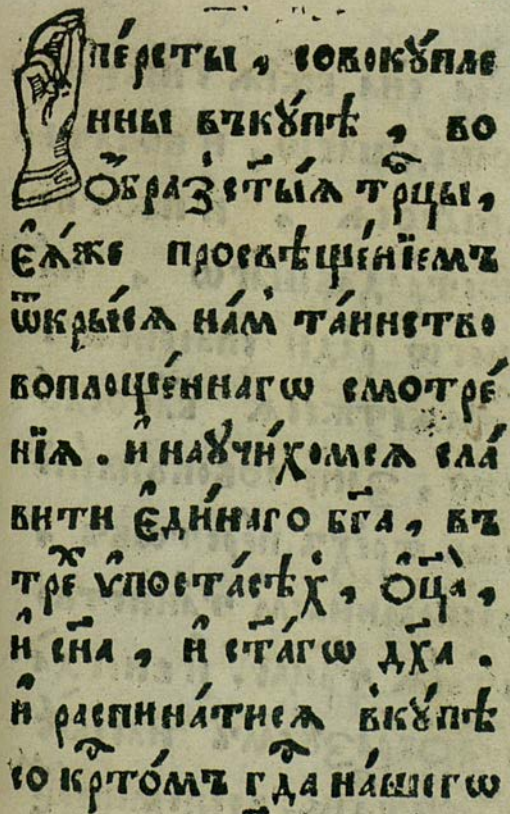 пе́рсты , совокꙋ́пле
нны въкꙋ́пѣ , во
ѻ҆́бразъ ст҃ы́ѧ трⷪ҇цы,
є҆ѧ́же просвѣще́нїемъ
ѿкры́сѧ на́м̾ та́инство
воплоще́ннагѡ смотре́
нїѧ . и҆ наꙋчи́хомсѧ сла́
вити є҆ди́наго бг҃а , въ
треⷯ ѵ҆поста́сѣх̾ , ѻ҆ц҃а̀ ,
и҆ сн҃а , и҆ ст҃а́гѡ дх҃а .
и҆ распина́тисѧ вкꙋ́пѣ
со крⷭ҇то́мъ гдⷭ҇а на́шегѡ